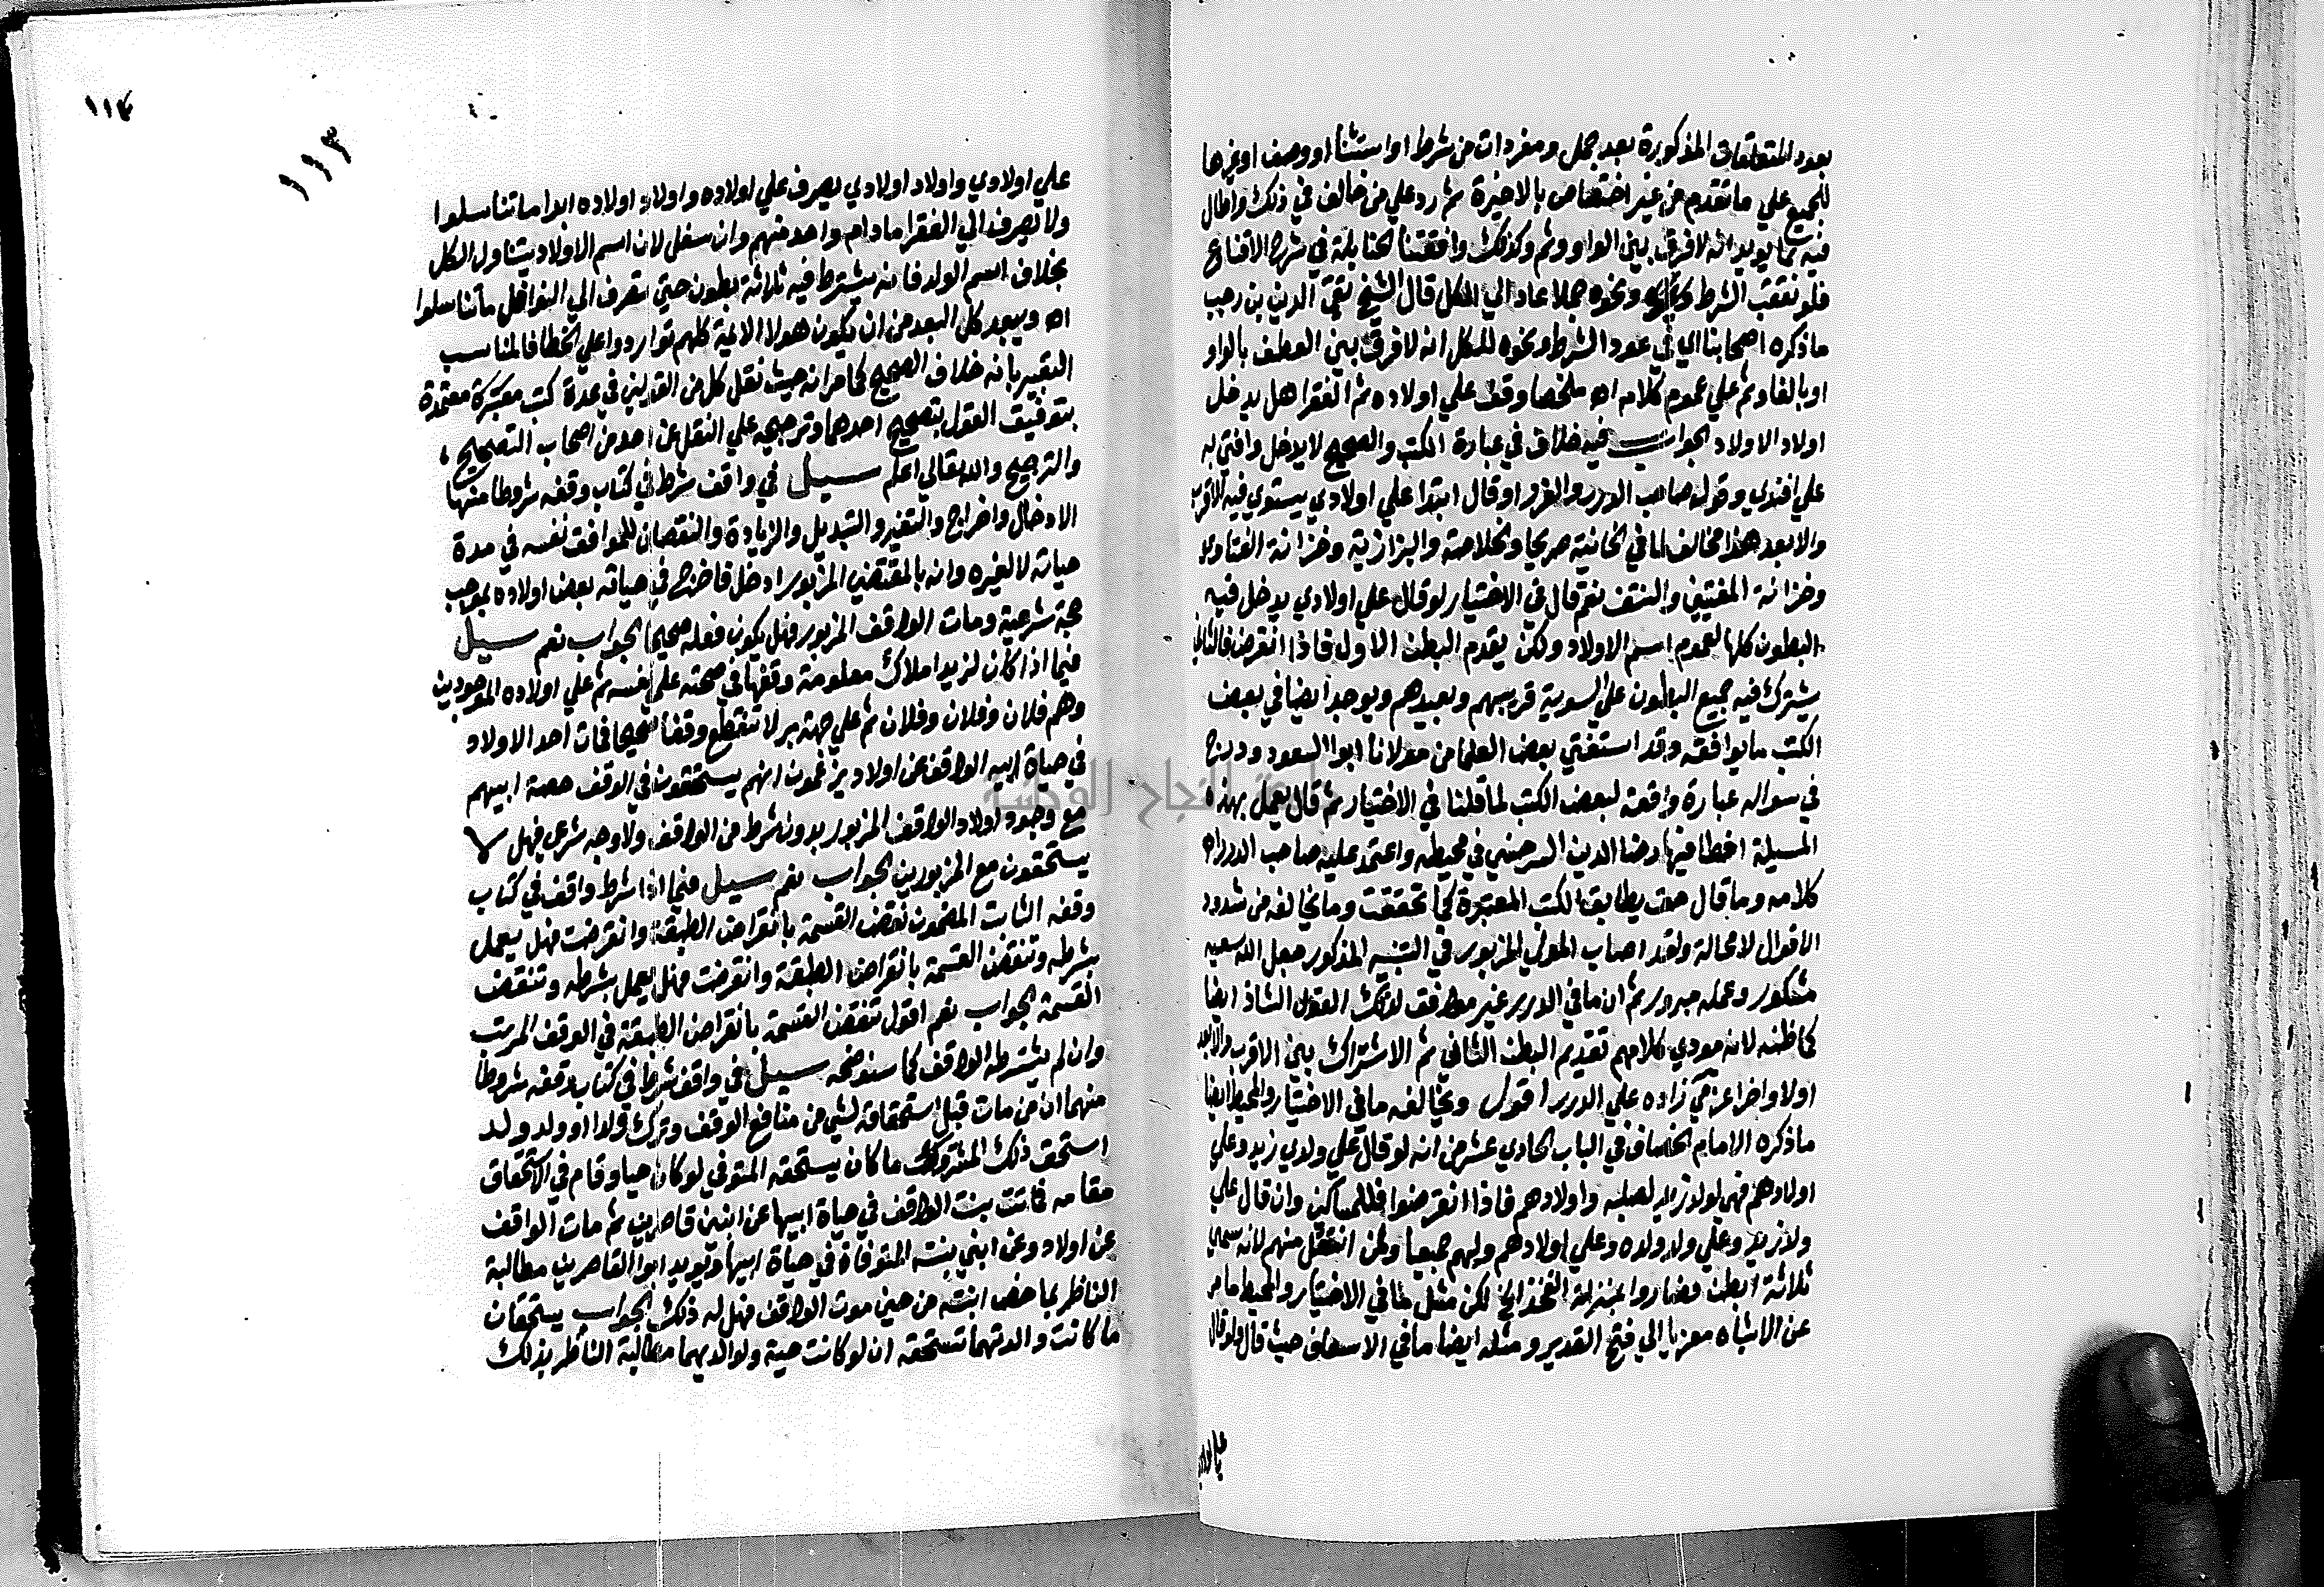 بعود المتعلقات المذكورة بعد جمل ومفردات من شرط او استثنأ او وصف اوغيرها
للجميع علي ما تقدم من غير اختصاص بالاخيرة ثم رد علي من خالف في ذلك واطال
فيه مما يويد انه لا فرق بين الواو وثم وكذلك وافقتنا الحنابلة في شرح الاقناع
فلو تعقب الشرط ونحوه جملا عاد الي الكل قال الشيخ تقي الدين بن رجب
ما ذكره اصحابنا اي في عود الشرط ونحوه للكل انه لا فرق بين العطف بالواو
او بالفا وثم علي عموم كلامه اه ملخصا وقف علي اولاده ثم الفقرا هل يدخل
اولاد الاولاد الجواب فيه خلاف في عبارة الكتب والصحيح لا يدخل وافتي به
علي افندي وقول صاحب الدرر والغرر او قال ابتدا علي اولادي يستوي فيه الاقرب
والابعد هذا مخالف لما في الخانية صريحا والخلاصة والبزازية وخزانة الفتاوي
وخزانة المفتيين والنتف نعم قال في الاختيار لو قال علي اولادي يدخل فيه
البطون كلها لعموم اسم الاولاد ولكن يقدم البطن الاول فاذا انقرض فالثاني
يشترك فيه جميع البطون علي السوية قريبهم وبعيدهم ويوجد ايضا في بعض
الكتب ما يوافقه وقد استفتي بعض العلما من مولانا ابوا السعود ودرج
في سواله عبارة واقعة لبعض الكتب لما قلنا في الاختيار ثم قال يعمل بهذه
المسيلة اخطا فيها رضا الدين السرخسي في محيطه واعتمد عليه صاحب الدرر اه
كلامه وما قال حق يطابق الكتب المعتبرة كما تحققت وما يخالفه من شذوذ
الاقوال لا محالة ولقد اصاب المولي المزبور في التنبيه المذكور جعل الله سعيه
مشكور وعمله مبرور ثم ان ما في الدرر غير موافق لذلك القول الشاذ ايضا
كما ظنه لانه مودي كلامهم تقديم البطن الثاني ثم الاشتراك بين الاقرب والابعد
اولا واخرا عزمي زاده علي الدرر اقول ويخالفه ما في الاختيار والمحيط ايضا
ما ذكره الامام الخصاف في الباب الحادي عشر من انه لو قال علي ولدي زيد وعلي
اولادهم فهي لولد زيد لصلبه واولادهم فاذا انقرضوا فللمساكين وان قال علي
ولد زيد وعلي ولد ولده وعلي اولادهم ولهم جميعا ولمن انتقل منهم لانه سمي
ثلاثة ابطن فصاروا بمنزلة الفخذ الخ لكن مثل ما في الاختيار والمحيط ما مر
عن الاشباه معزيا الي فتح القدير ومثله ايضا ما في الاسعاف حيث قال ولو قال
علي اولادي
١١٤
١١٣
علي اولادي واولاد اولادي يصرف علي اولاده واولاد اولاده ابدا ما تناسلوا
ولا يصرف الي الفقرا ما دام واحد منهم وان سفل لان اسم الاولاد يتناول الكل
بخلاف اسم الولد فانه يشترط فيه ثلاثة بطون حتي يصرف الي النوافل ما تناسلوا
اه ويبعد كل البعد من ان يكون هولا الايمة كلهم تواردوا علي الخطا فالمناسب
التعبير بانه خلاف الصحيح كما مر انه حيث نقل كل من القولين في عدة كتب معتبرة معتمدة
بتوفيق القول بتصحيح احدهما وترجيحه علي النقل عن احد من اصحاب التصحيح
والترجيح والله تعالي اعلم سيل في واقف شرط في كتاب وقفه شروطا منها
الادخال واخراج والتغير والتبديل والزيادة والنقصان للواقف نفسه في مدة
حياته لا لغيره وانه بالمقتضي المزبور ادخل فاخرج في حياته بعض اولاده بموجب
حجة شرعية ومات الواقف المزبور فهل يكون فعله صحيحا الجواب نعم سيل
فيما اذا كان لزيد املاك معلومة وقفها في صحته علي نفسه ثم علي اولاده الموجودين
وهم فلان وفلان وفلان ثم علي جهة بر لا تنقطع وقفا صحيحا فمات احد الاولاد
في حياة ابيه الواقف عن اولاد يزعمون انهم يستحقون في الوقف حصة ابيهم
مع وجود اولاد الواقف المزبور بدون شرط من الواقف ولا وجه شرعي فهل لا
يستحقون مع المزبورين الجواب نعم سيل فيما اذا شرط واقف في كتاب
وقفه الثابت المضمون نقض القسمة بانقراض الطبقة وانقرضت فهل يعمل
بشرطه وتنقض القسمة بانقراض الطبقة وانقرضت فهل يعمل بشرطه وتنقض
القسمة الجواب نعم اقول تنقض القسمة بانقراض الطبقة في الوقف المرتب
وان لم يشترط الواقف كما سنوضحه سيل في واقف شرط في كتاب وقفه شروطا
منها ان من مات قبل استحقاقه لشي من منافع الوقف وترك ولدا او ولد ولد
استحق ذلك المتروك ما كان يستحقه المتوفي لو كان حيا وقام في الاستحقاق
مقامه فماتت بنت الواقف في حياة ابيها عن ابنين قاصرين ثم مات الواقف
عن اولاد وعن ابني بنته المتوفاة في حياة ابيها ويريد ابوا القاصرين مطالبة
الناظر بما خص ابنته من حين موت الواقف فهل له ذلك الجواب يستحقان
ما كانت والدتهما تستحقه ان لو كانت حية ولوالدهما مطالبة الناظر بذلك
جامعة النجاح الوطنية